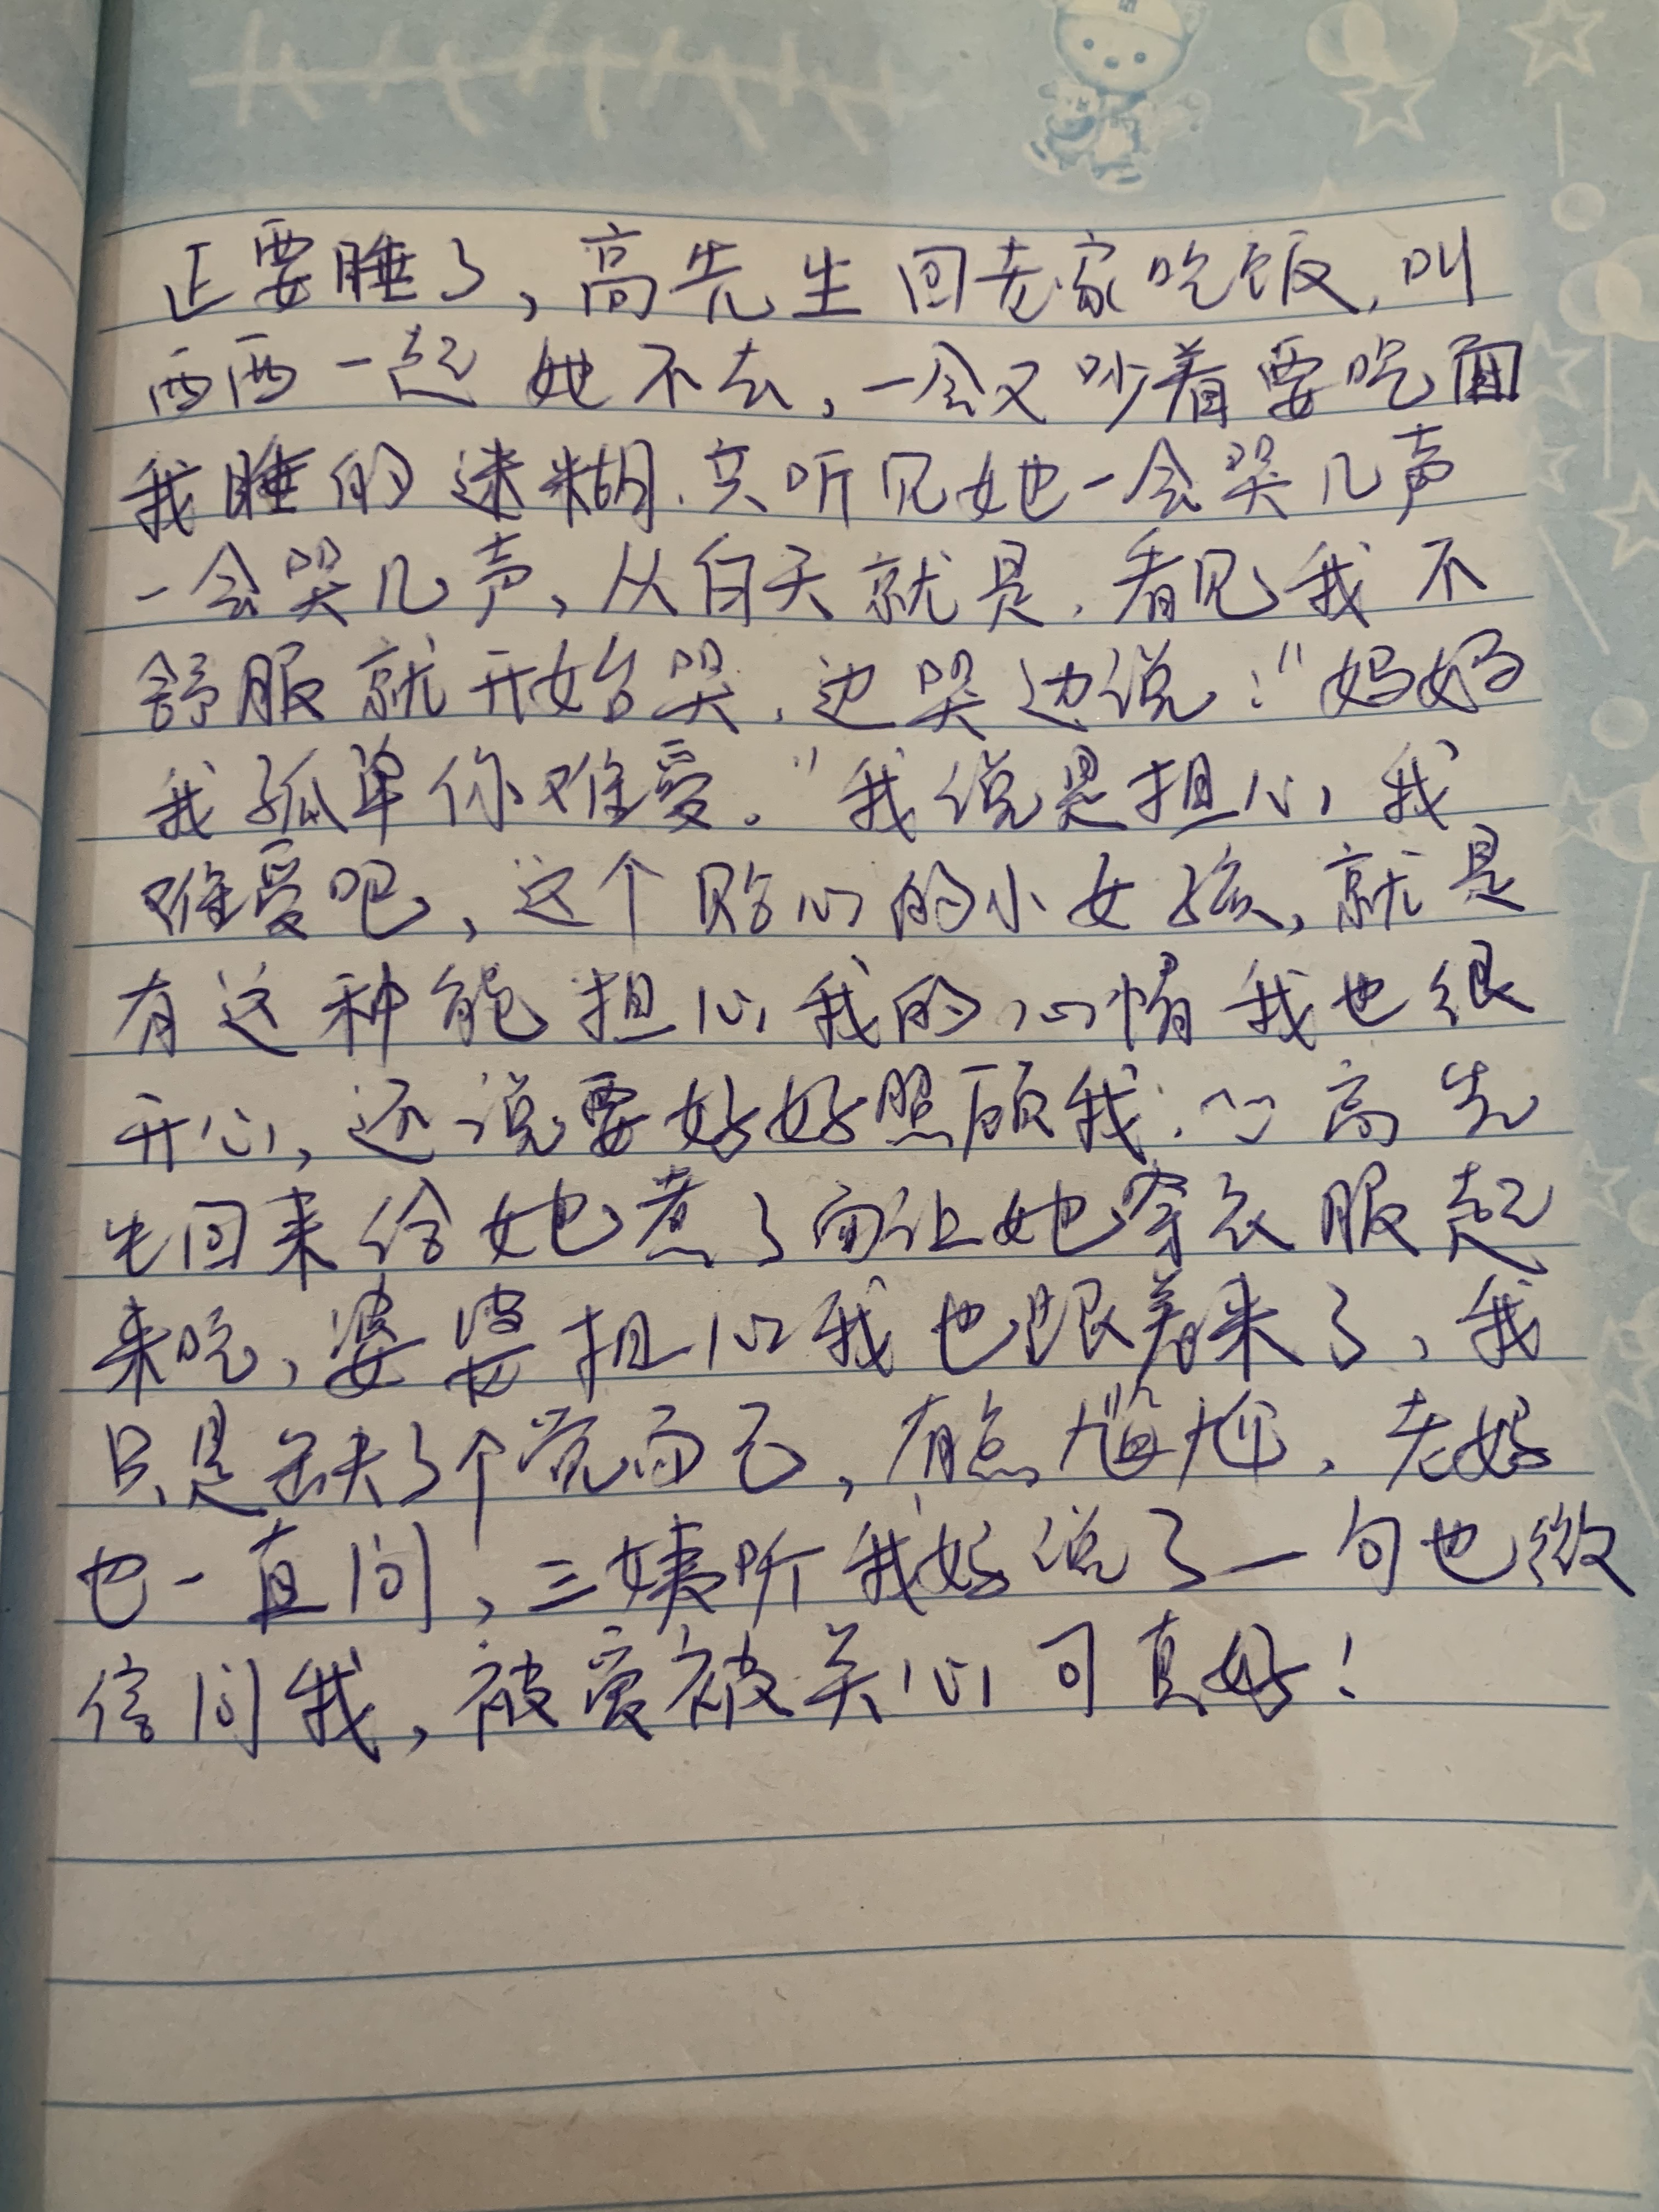 正要睡了,高先生回老家吃饭,叫
西西一起她不去,一会又吵着要吃面
我睡的迷糊.只听见她一会哭几声
一会哭几声,从白天就是.看见我不
舒服就开始哭.边哭边说:"妈妈
我孤单你难受。"我说是担心我
难受吧,这个贴心的小女孩,就是
有这种能担心我的心情我也很
开心,还说要好好照顾我.高先
生回来给她煮了面让她穿衣服起
来吃,婆婆担心我也跟着来了,我
只是缺了个觉而已,有点尴尬.老妈
也一直问,三姨听我妈说了一句也微
信问我,被爱被关心可真好!